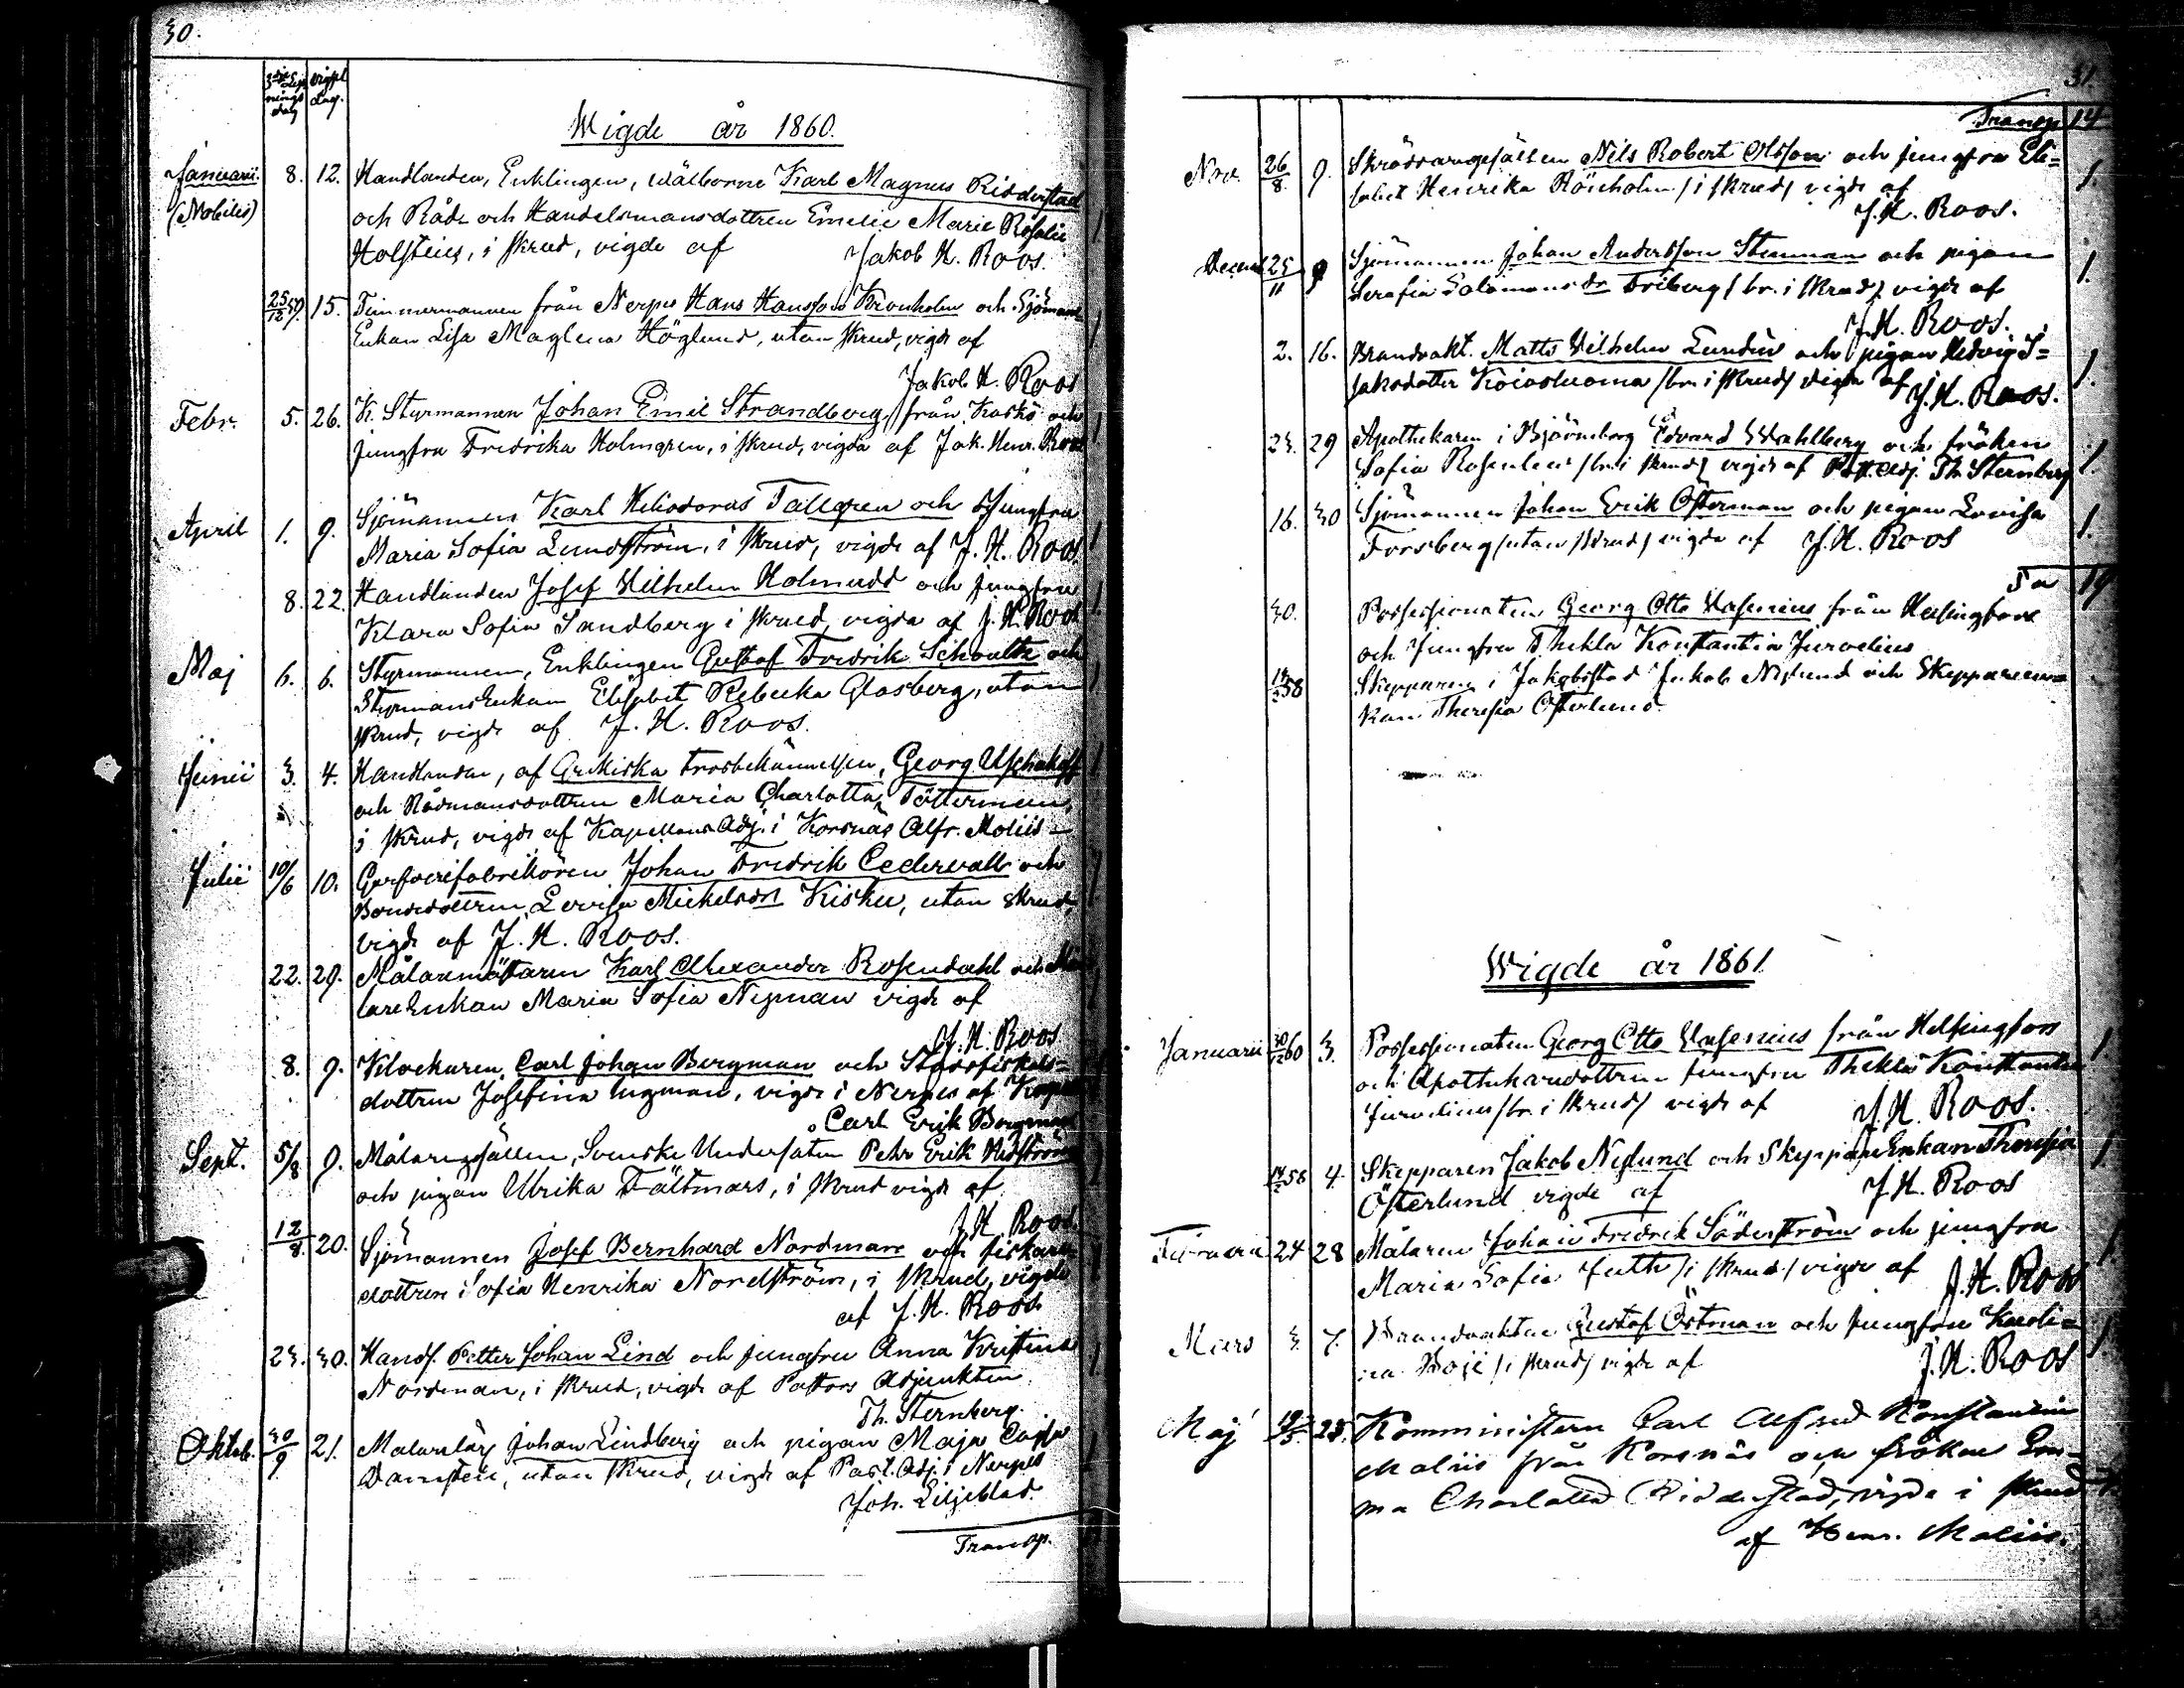 30.
3dje Lys
nings
dag
vigsel
dag.
Wigde år 1860.
Januarii. 8. 12. Handlanden, Enklingen, wälborne Karl Magnus Ridderstad
(Nobilis) och Råd- och Handelsmansdottren Emelie Marie Rosalie
Holsteus, i skrud, vigde af Jakob H. Roos.
25/12 59. 15. Timmermannen från Nerpes Hans Hansson Kronholm och Sjömans
Enkan Lisa Maglena Höglund, utan skrud, vigde af
Jakob H. Roos
Febr. 5. 26. K. Styrmannen Johan Emil Strandberg från Kaskö och
jungfru Fredrika Holmgren, i skrud, vigda af Jak. Henr. Roos
April 1. 9. Sjömannen Karl Heliodorus Tallgren och Jungfru
Maria Sofia Lundström, i skrud, vigde af J. H. Roos.
8. 22. Handlanden Josef Wilhelm Holmudd och jungfru
Klara Sofia Sandberg i skrud vigda af J. H. Roos
Maj 6. 6. Styrmannen, Enklingen Gustaf Fredrik Schoultz och
StyrmansEnkan Elisabet Rebecka Glasberg, utan
skrud, vigde af J. H. Roos.
Junii 3. 4. Handlanden, af Grekiska trosbekännelsen, Georg Uschakoff
och Rådmansdottren Maria Charlotta Tötterman,
i skrud, vigde af Kapellans Adj. i Korsnäs Alfr. Moliis
Julii 10/6 10. Garfverifabrikören Johan Fredrik Cedervall och
Bondedottren Lovisa Mickelsdr Kisku, utan skrud,
vigde af J. H. Roos.
22. 29. Målaremästaren Karl Alexander Rosendahl och Må
lareEnkan Maria Sofia Nyman vigde af
J. H. Roos
8. 9. Klockaren Carl Johan Bergman och Stadsfiskals-
dottren Josefina Ingman, vigde i Nerpes af Kapell
Carl Erik Bergman
Sept. 5/8 9. Målaregesällen, Svenske Undersåten Pehr Erik Widström
och pigan Ulrika Fältmars, i skrud vigde af
J. H. Roos.
12/8 20. Sjömannen Josef Bernhard Nordman och fiskare
dottren Sofia Henrika Nordström, i skrud, vigde
af J. H. Roos
23. 30. Handl. Petter Johan Lind och jungfru Anna Kristina
Nordman, i skrud, vigde af Pastors Adjunkten
Th. Sternberg.
Oktob. 30/9 21. Målarelärl Johan Lindberg och pigan Maja Cajsa
Damsten, utan skrud, vigde af Past. Adj. i Nerpes
Joh. Liljeblad.
Transp.
31.
Transp 14
Nov. 26/8. 9. Skräddaregesällen Nils Robert Olsson och jungfru Eli-
sabet Henrika Rönholm / i skrud / vigde af 1.
J. H. Roos.
Decemb 25/11 9 Sjömannen Johan Andersson Stenman och pigan 1.
Serafia Salomons dr Friberg / br. i skrud / vigde af
J. H. Roos.
2. 16. Brandvakt. Matts Wilhelm Lundén och pigan Hedvig I-
saksdotter Koivoluoma / br. i skrud / vigde af 1.
J. H. Roos.
23. 29 Apothekaren i Björneborg Edvard Wahlberg och fröken
Sofia Rosenlew / br. i skrud / vigde af Past. Adj. Th. Sternberg 1.
16. 30 Sjömannen Johan Erik Österman och pigan Lovisa 1.
Forsberg / utan skrud / vigde af J. H. Roos
Sa 19
30. Possessionaten Georg Otto Wasenius från Helsingfors
och Jungfru Thekla Konstantia Juvelius
14/2 58 Skepparen i Jakobstad Jakob Nylund och Skeppareen-
kan Theresia Österlund.
Wigde år 1861.
Januarii 30/12 60 3. Possessionaten Georg Otto Wasenius från Helsingfors 1.
och Apothekaredottren jungfru Thekla Konstantia
Juvelius / br. i skrud / vigde af J. H. Roos.
14/2 58 4. Skepparen Jakob Nylund och SkeppareEnkan Theresia 1.
Österlund vigde af J. H. Roos
Februarii 24 28 Målaren Johan Fredrik Söderström och jungfru 1.
Maria Sofia Juth / i skrud / vigde af J. H. Roos
Mars 3 7. Brandvakten Gustaf Östman och Jungfru Karoli- 1.
na Boje / i skrud / vigde af J. H. Roos
Maj 19/5. 28. Komministern Carl Alfred Konstantin
Moliis från Korsnäs och fröken Em-
ma Charlotta Ridderstad, vigde i skrud 1.
af Henr. Moliis.